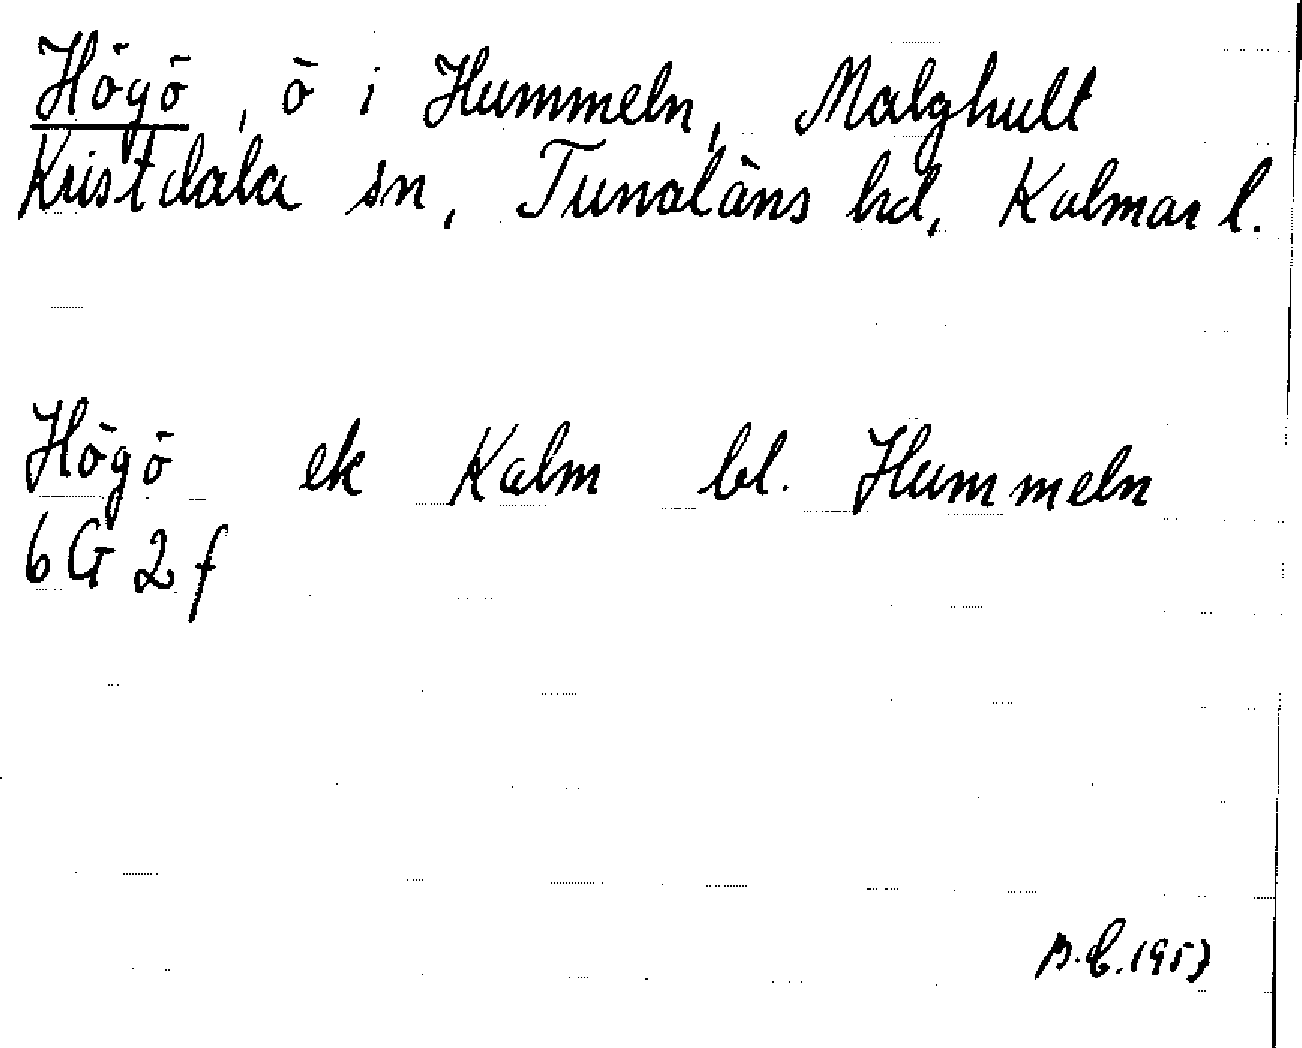 Högö, ö i Hummeln, Malghult
Kristdala sn, Tunaläns hd, Kalmar l.
Högö ek Kalm bl. Hummeln
6G 2f